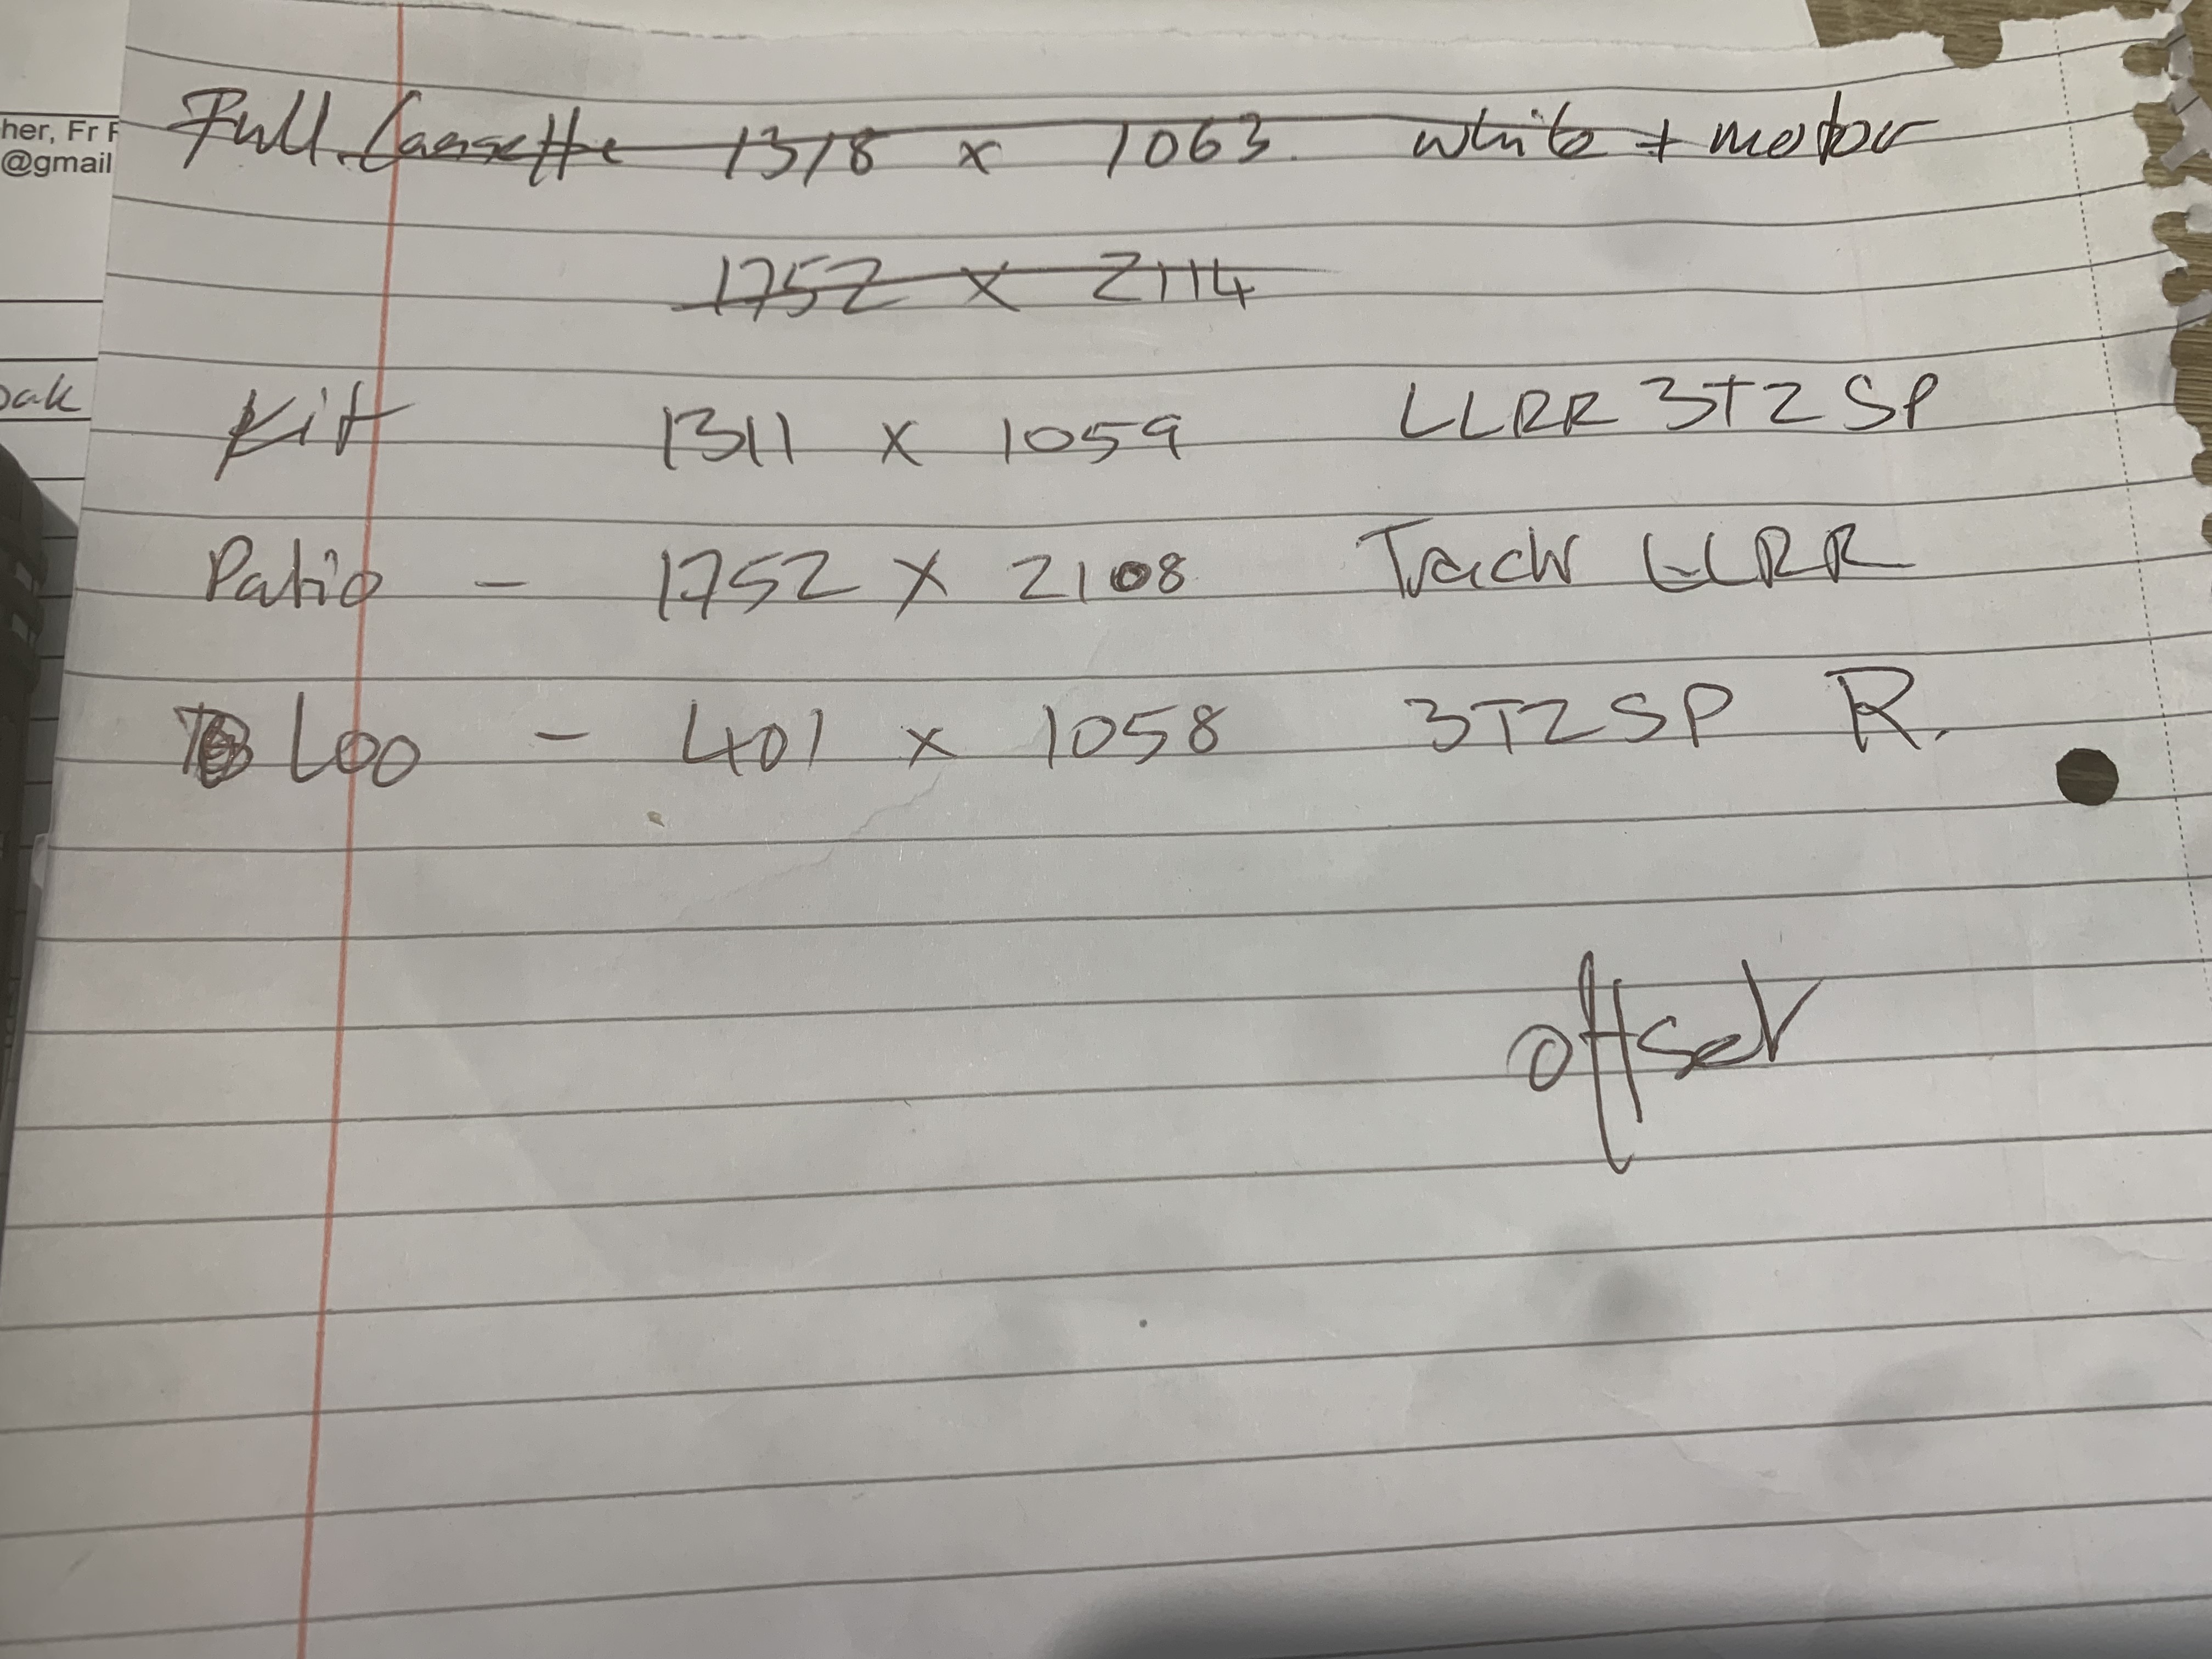 her, Fr F
@gmail
Full Cassette 1318 x 1063 white + motor
1752 x 2114
oak
Kit 1311 x 1059 LLRR 3TZ SP
Patio - 1752 x 2108 Track LLRR
Loo - 401 x 1058 3TZSP R.
offset